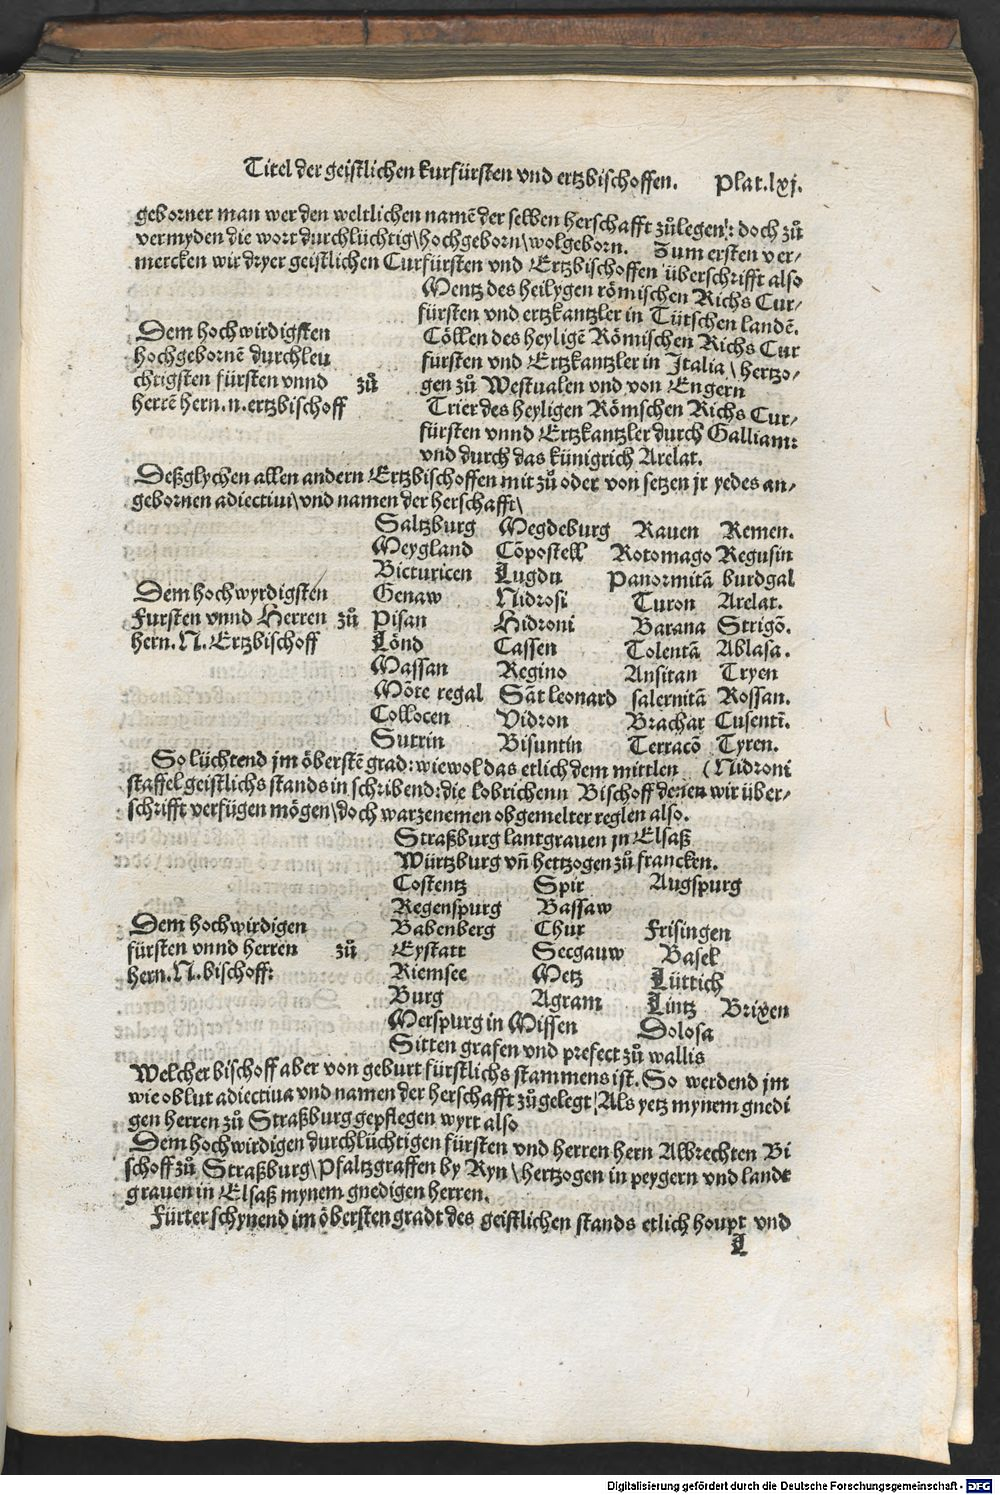 Titel der geistlichen kurfürsten vnd ertzbischoffen. Plat.lxj.
geborner man wer den weltlichen namē der selben herschafft zůlegen: doch zů
vermyden die wort durchlüchtig\hochgeborn\wolgeborn. Zum ersten ver/
mercken wir dryer geistlichen Curfürsten vnd Ertzbischoffen überschrifft also
Mentz des heilygen römischen Richs Cur/
fürsten vnd ertzkantzler in Tütschen landē.
Dem hochwirdigsten
hochgebornē durchleu
chtigsten fürsten vnnd zů
herrē hern.n.ertzbischoff
Cöllen des heyligē Römischen Richs Cur
fürsten vnd Ertzkantzler in Italia\hertzo/
gen zů Westualen vnd von Engern
Trier des heyligen Römschen Richs Cur/
fürsten vnnd Ertzkantzler durch Galliam:
vnd durch das künigrich Arelat.
Deßglychen allen andern Ertzbischoffen mit zů oder von setzen jr yedes an/
gebornen adiectiui\vnd namen der herschafft\
Saltzburg Megdeburg Rauen Remen.
Meygland Cōpostell Rotomago Regusin
Bicturicen Lugdu Panormitā burdgal
Dem hochwyrdigsten Genaw Nidrosi Turon Arelat.
Fursten vnnd Herren zů Pisan Hidroni Barana Strigō.
hern.N.Ertzbischoff Lönd Cassen Tolentā Ablasa.
Massan Regino Ansitan Tryen
Mōte regal Sāt leonard salernitā Rossan.
Collocen Vidron Brachar Cusentī.
Sutrin Bisuntin Terracō Tyren.
So lüchtend jm öberstē grad: wiewol das etlich dem mittlen (Nidroni
staffel geistlichs stands in schribend: die lobrichenn Bischoff denen wir über/
schrifft verfügen mögen\doch warzenemen obgemelter reglen also.
Straßburg lantgrauen jn Elsaß
Würtzburg vn̄ hertzogen zů francken.
Costentz Spir Augspurg
Regenspurg Bassaw
Dem hochwirdigen Babenberg Chur Frisingen
fürsten vnnd herren zů Eystatt Secgauw Basel
hern.N.bischoff: Riemsee Metz Lüttich
Burg Agram Lintz Brixen
Merspurg in Missen Dolosa
Sitten grafen vnd prefect zů wallis
Welcher bischoff aber von geburt fürstlichs stammens ist. So werdend jm
wie oblut adiectiua vnd namen der herschafft zůgelegt\Als yetz mynem gnedi
gen herren zů Straßburg gepflegen wyrt also
Dem hochwirdigen durchlüchtigen fürsten vnd herren hern Albrechten Bi
schoff zů Straßburg\Pfaltzgraffen by Ryn\hertzogen in peygern vnd landt
grauen in Elsaß mynem gnedigen herren.
Fürter schynend im öbersten gradt des geistlichen stands etlich houpt vnd
L
Digitalisierung gefördert durch die Deutsche Forschungsgemeinschaft - DFG